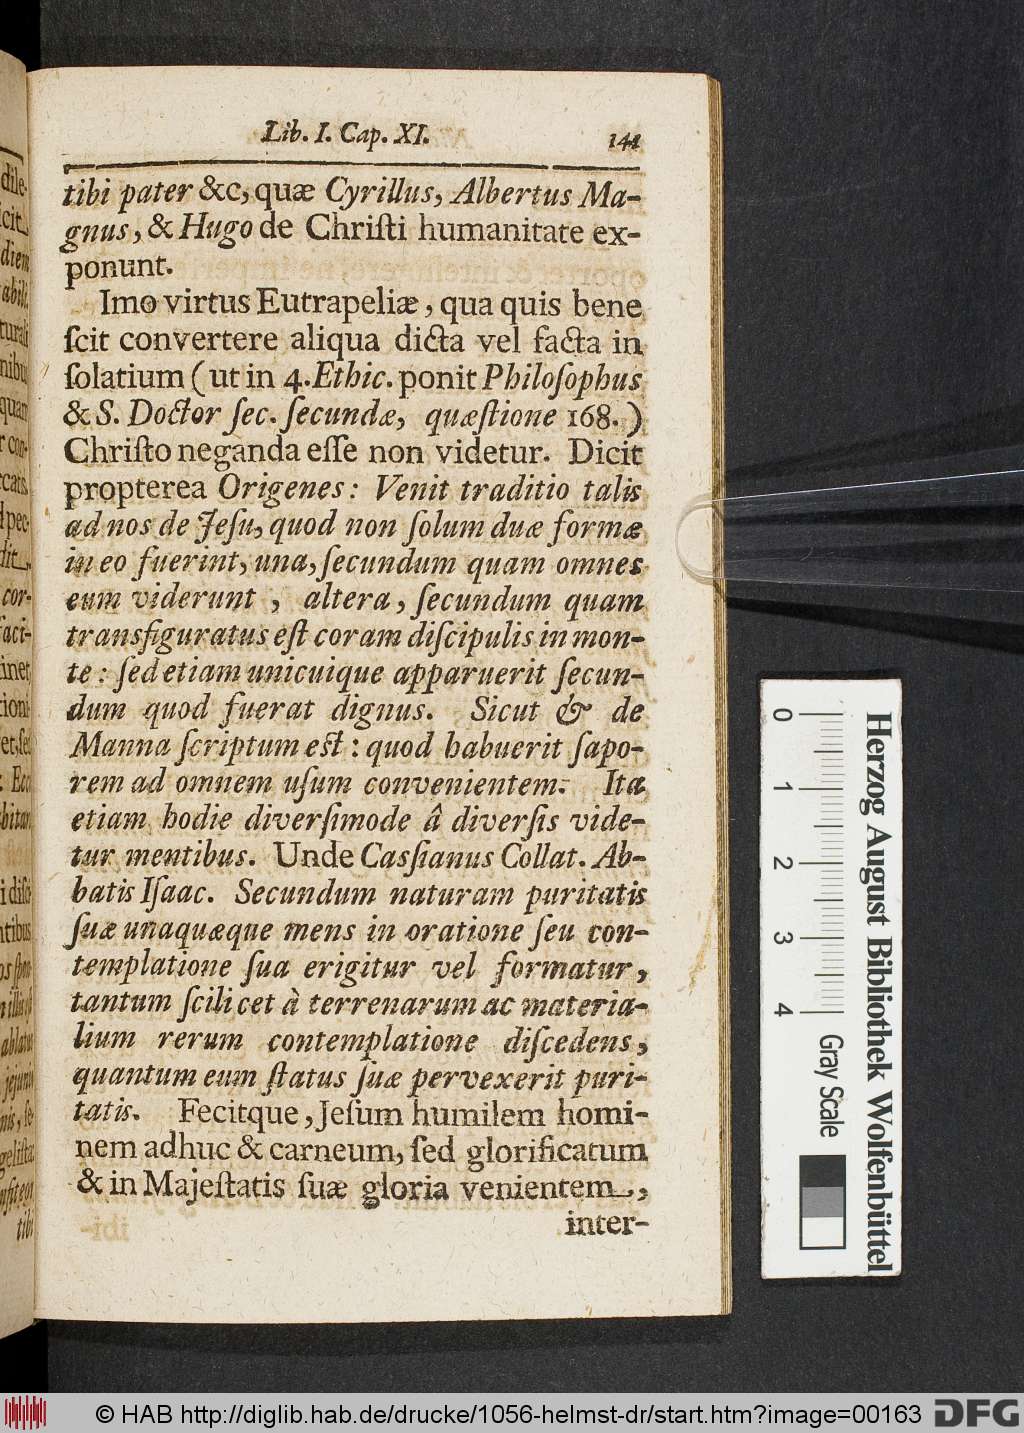 Lib. I. Cap. XI. 141
tibi pater &c, quæ Cyrillus, Albertus Ma-
gnus, & Hugo de Chriſti humanitate ex-
ponunt.
Imo virtus Eutrapeliæ, qua quis bene
ſcit convertere aliqua dicta vel facta in
ſolatium (ut in 4. Ethic. ponit Philoſophus
& S. Doctor ſec. ſecundæ, quæſtione 168.)
Chriſto neganda eſſe non videtur. Dicit
propterea Origenes: Venit traditio talis
ad nos de Jeſu, quod non ſolum duæ formæ
in eo fuerint, una, ſecundum quam omnes
eum viderunt, altera, ſecundum quam
transfiguratus eſt coram diſcipulis in mon-
te: ſed etiam unicuique apparuerit ſecun-
dum quod fuerat dignus. Sicut & de
Manna ſcriptum eſt: quod habuerit ſapo-
rem ad omnem uſum convenientem. Ita
etiam hodie diverſimode â diverſis vide-
tur mentibus. Unde Caſſianus Collat. Ab-
batis Iſaac. Secundum naturam puritatis
ſuæ unaquæque mens in oratione ſeu con-
templatione ſua erigitur vel formatur,
tantum ſcilicet à terrenarum ac materia-
lium rerum contemplatione diſcedens,
quantum eum ſtatus ſuæ pervexerit puri-
tatis. Fecitque, Jeſum humilem homi-
nem adhuc & carneum, ſed glorificatum
& in Majeſtatis ſuæ gloria venientem,
inter-
0 1 2 3 4
Gray Scale
Herzog August Bibliothek Wolfenbüttel
© HAB http://diglib.hab.de/drucke/1056-helmst-dr/start.htm?image=00163
DFG